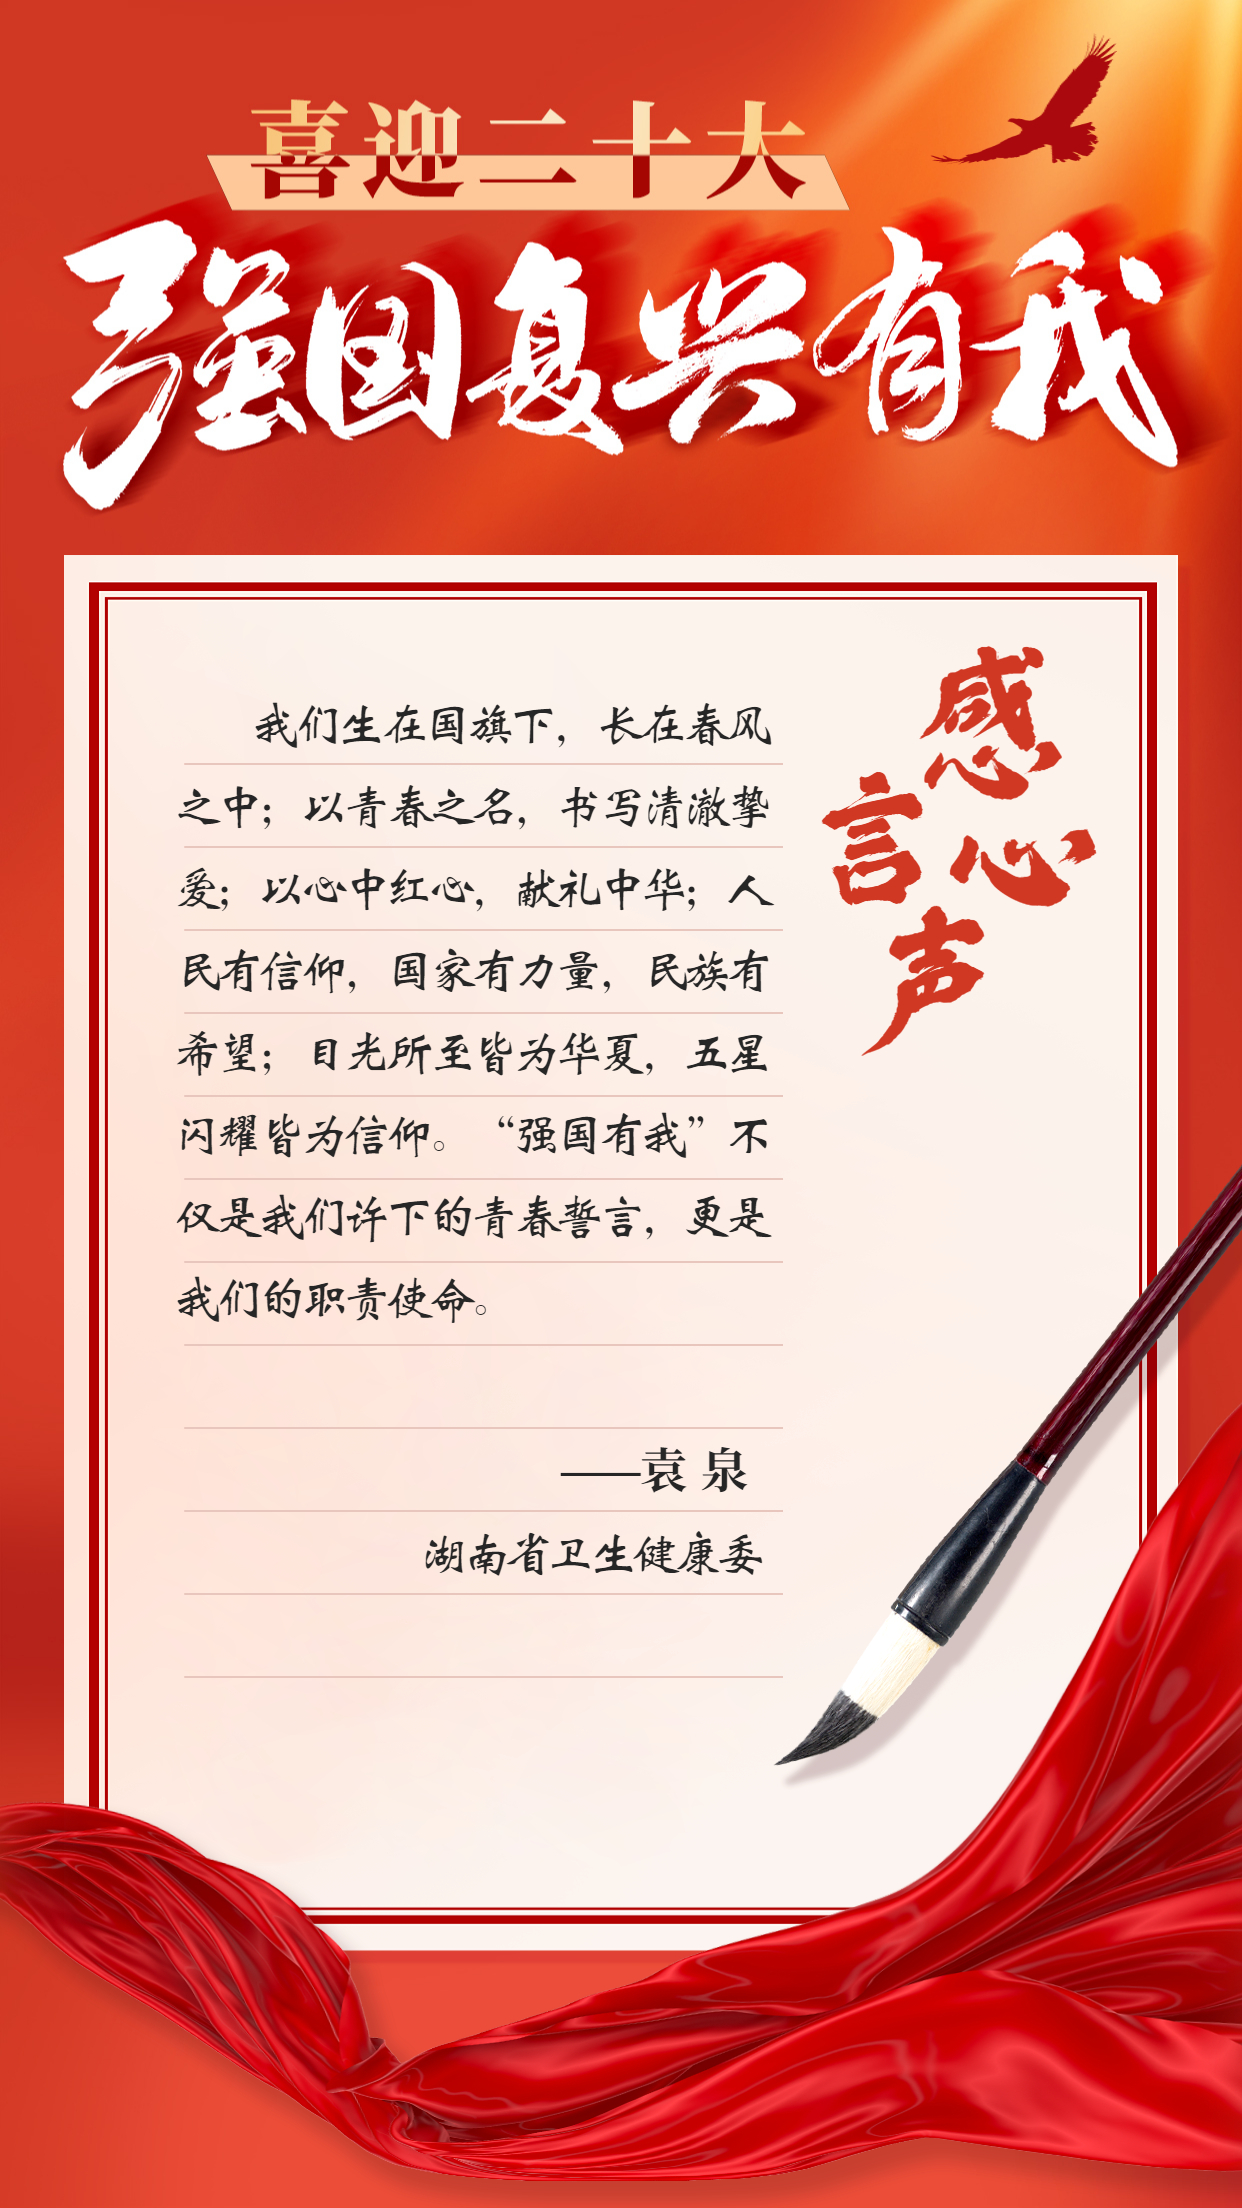 喜迎二十大
强国复兴有我
感言心声
我们生在国旗下，长在春风
之中；以青春之名，书写清澈挚
爱；以心中红心，献礼中华；人
民有信仰，国家有力量，民族有
希望；目光所至皆为华夏，五星
闪耀皆为信仰。“强国有我”不
仅是我们许下的青春誓言，更是
我们的职责使命。
——袁 泉
湖南省卫生健康委